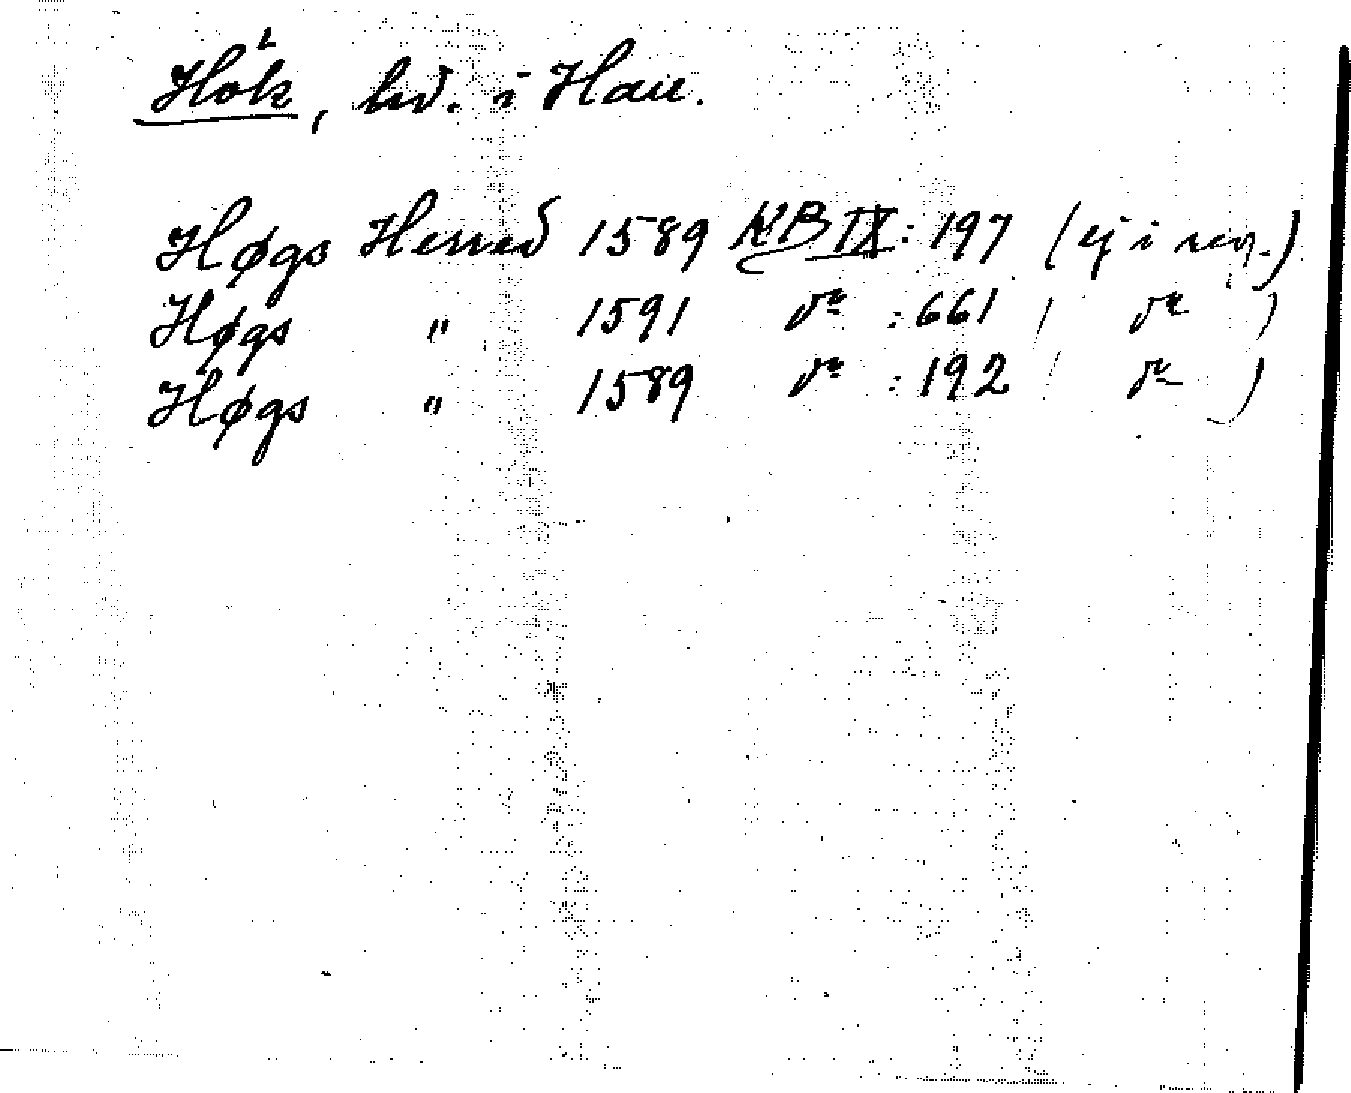 Hók, hd. i Hall.
Høgs Herred 1589 KB IX: 197 (ej i reg.)
Høgs " 1591 do : 661 ( do )
Høgs " 1589 do : 192 ( do )